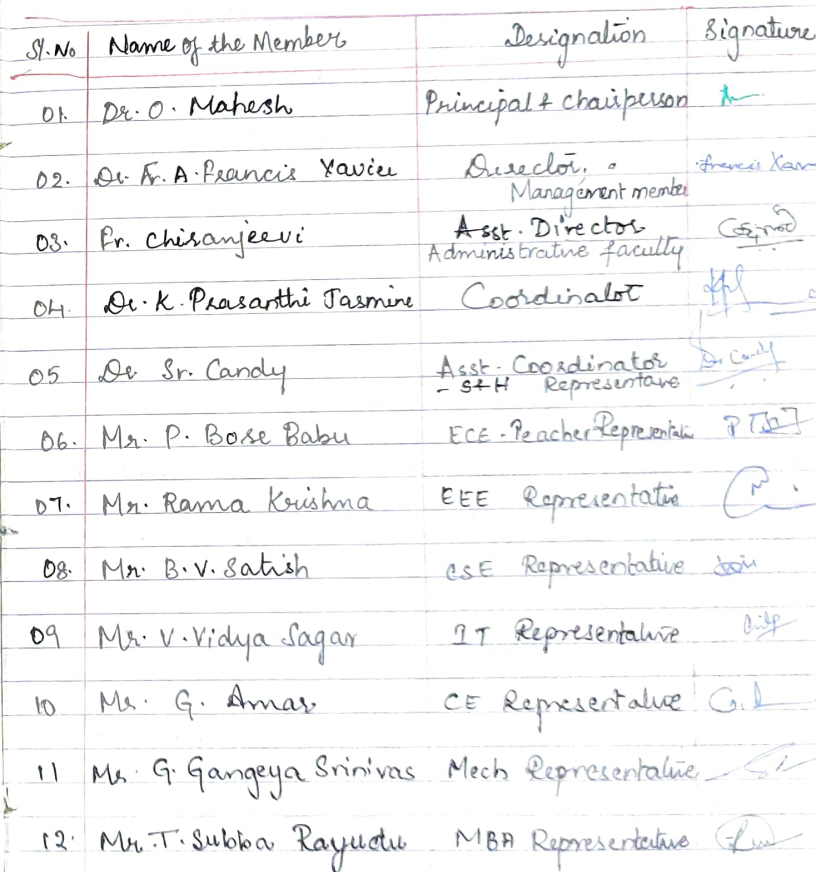 Sl. No Name of the Member Designation Signature
01. Dr. O. Mahesh Principal & Chairperson
02. Dr. Fr. A. Francis Xavier Director, Francis Xav
Management member
03. Fr. Chiranjeevi Asst. Director
Administrative faculty
04. Dr. K. Prasanthi Jasmine Coordinator
05 Dr Sr. Candy Asst. Coordinator Dr Candy
- S&H Representave
06. Mr. P. Bose Babu ECE - Peacher Representati
07. Mr. Rama Krishna EEE Representatie
08. Mr. B.V. Satish CSE Representative
09 Mr. V. Vidya Sagar IT Representative
10 Mr. G. Amar CE Representative
11 Mr. G. Gangeya Srinivas Mech Representative
12. Mr. T. Subba Rayudu MBA Representative